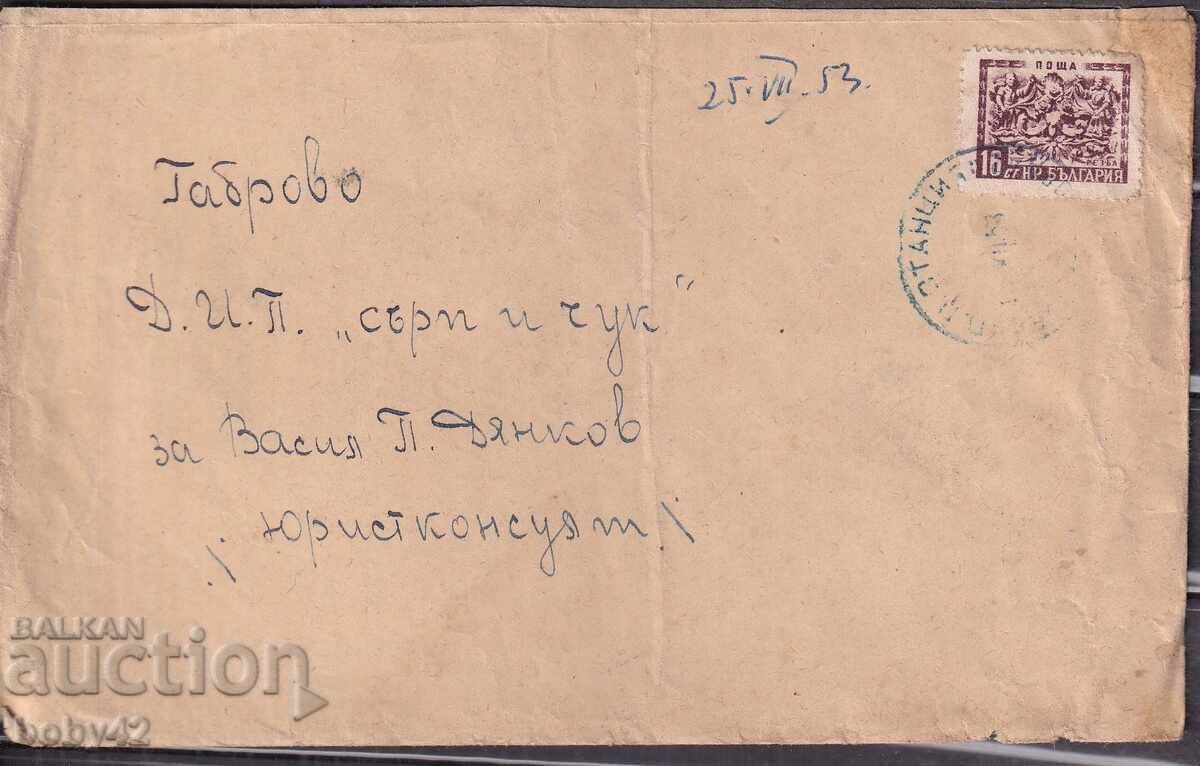 25.VII.53.
ПОЩА
16 СТ
РЕЗБА
НР БЪЛГАРИЯ
Габрово
Д.И.П. „сърп и чук"
за Васил П. Дянков
\ юристконсулт \
BALKAN
auction
boby42